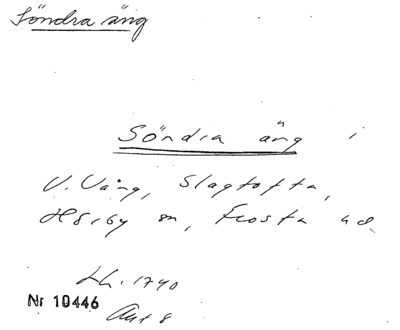 Söndra äng
Söndra äng i
V. Vång, Slagtofta,
Hörby sn, Frosta hd.
Lh. 1740
Nr 10446
Akt 8